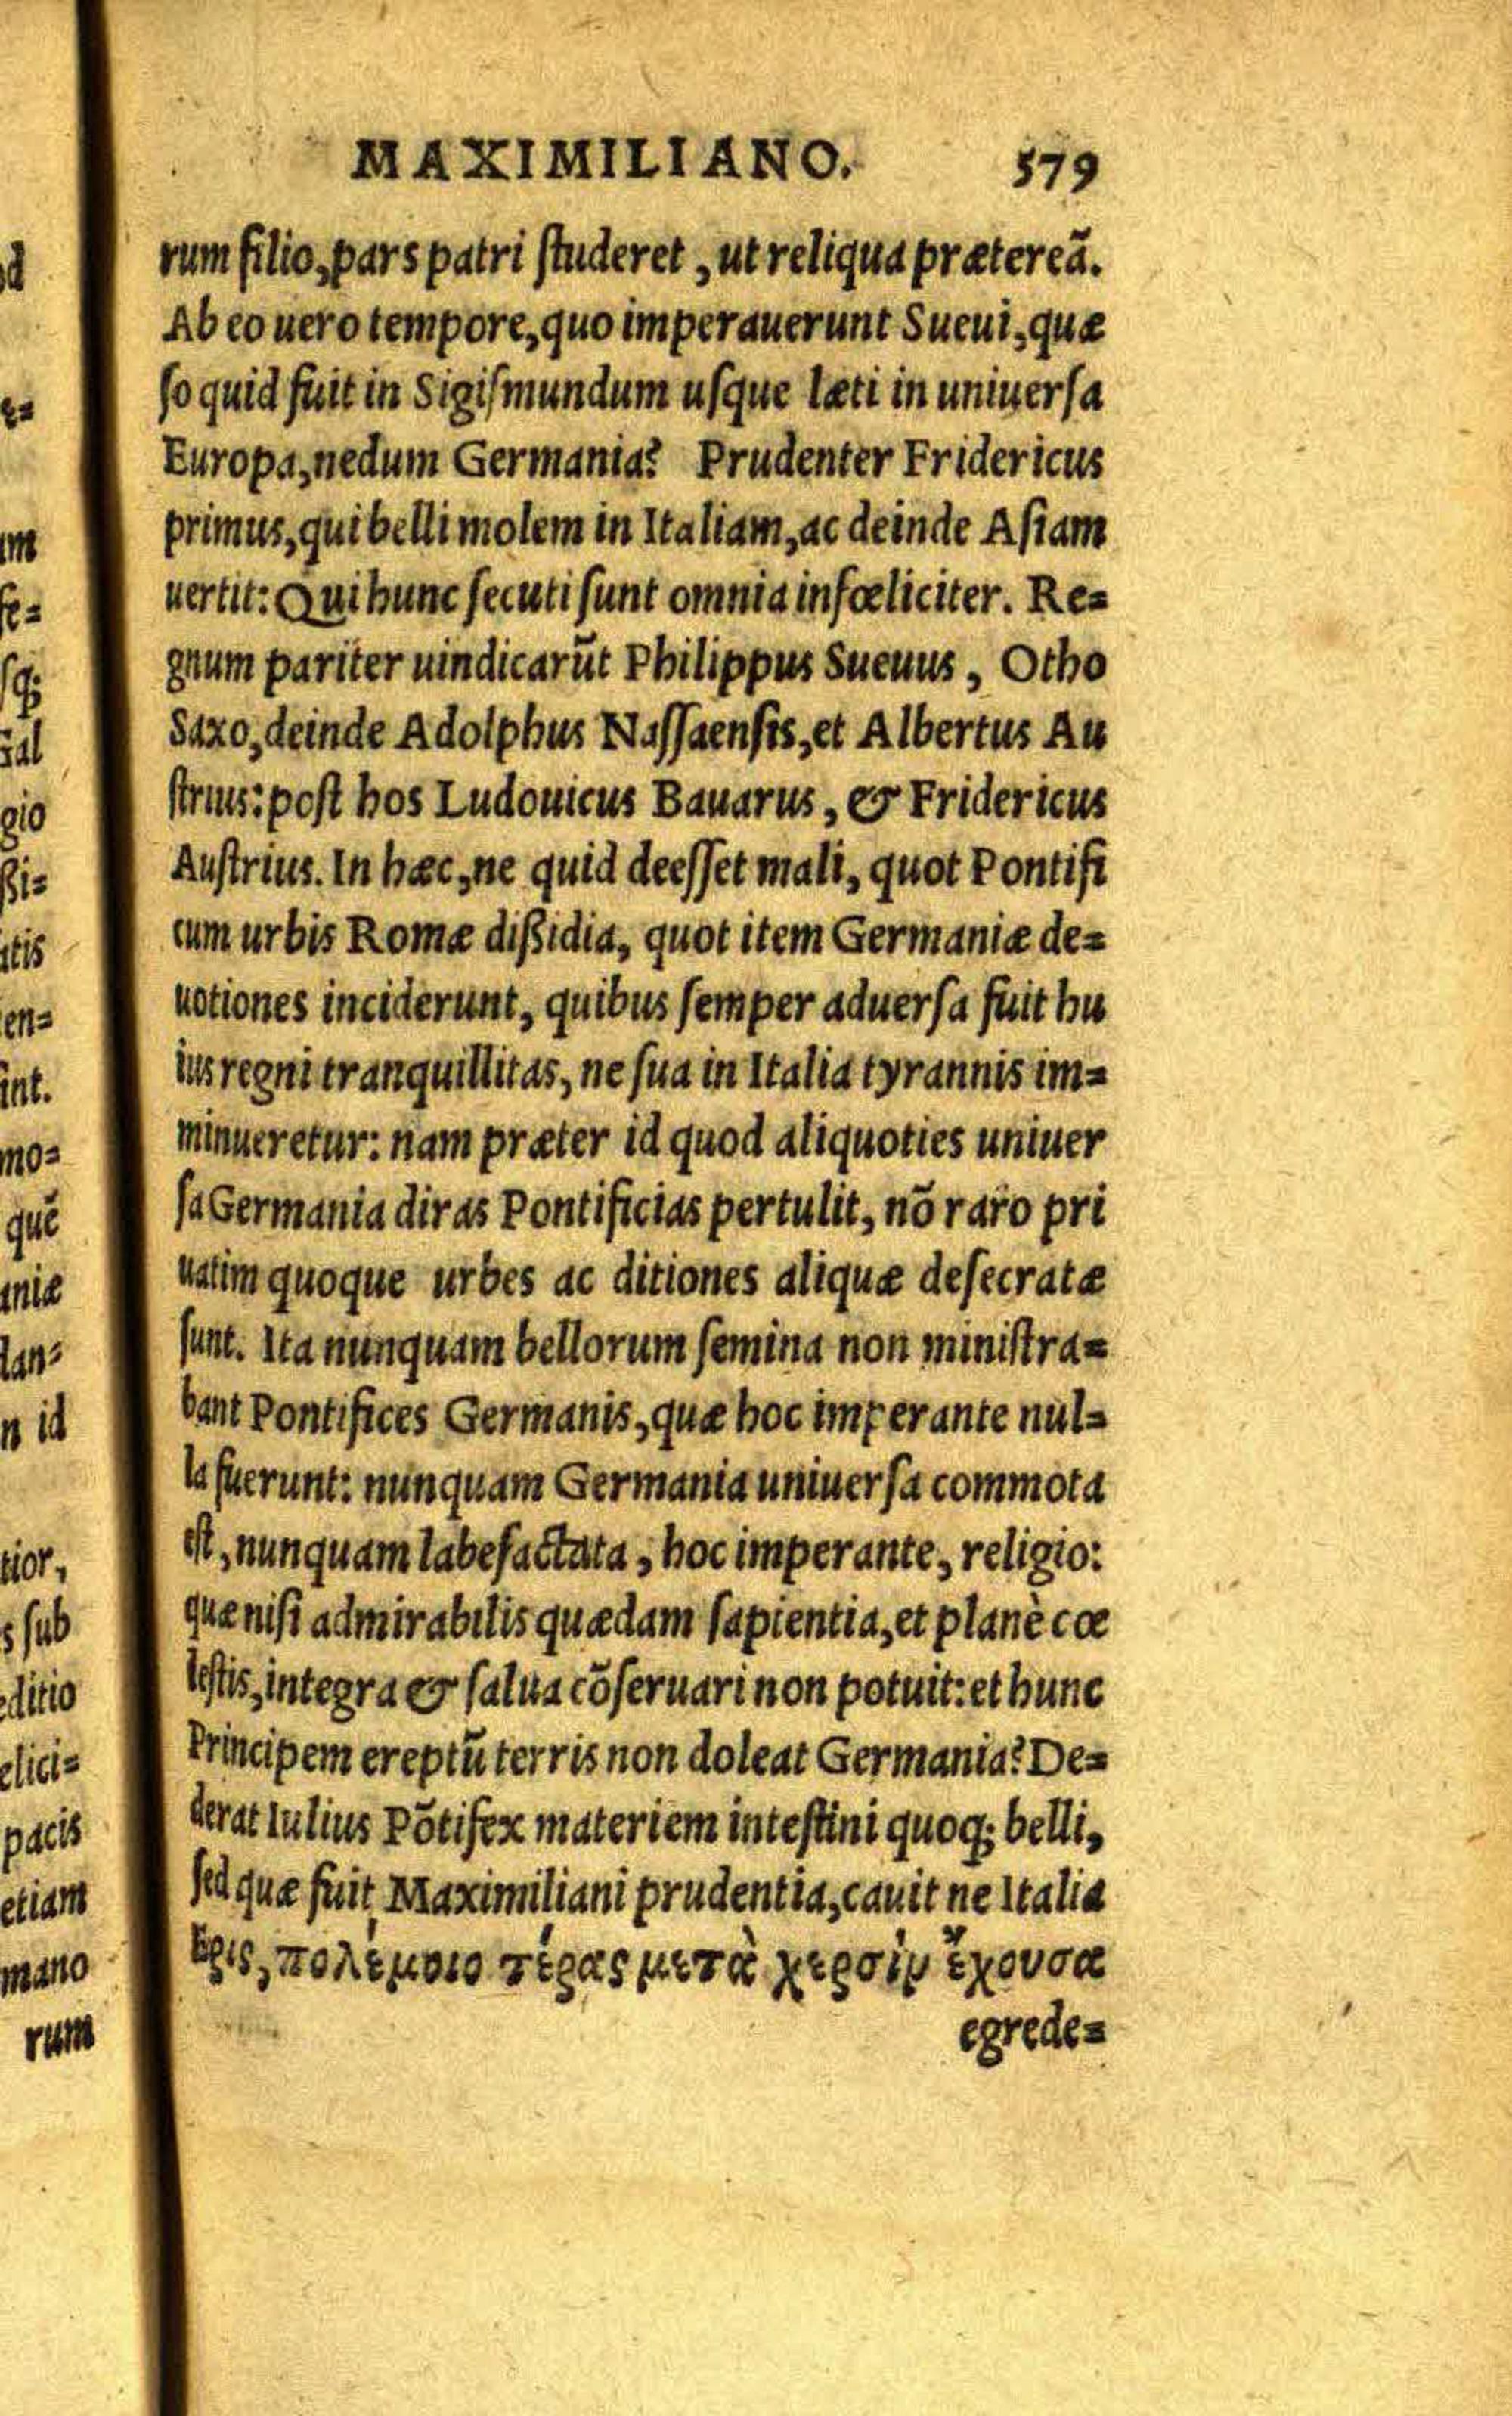 MAXIMILIANO. 579
rum filio, pars patri ſtuderet, ut reliqua prætereã.
Ab eo uero tempore, quo imperauerunt Sueui, quæ
ſo quid fuit in Sigiſmundum uſque læti in uniuerſa
Europa, nedum Germania? Prudenter Fridericus
primus, qui belli molem in Italiam, ac deinde Aſiam
uertit: Qui hunc ſecuti ſunt omnia infœliciter. Re=
gnum pariter uindicarũt Philippus Sueuus, Otho
Saxo, deinde Adolphus Naſſaenſis, et Albertus Au
ſtrius: poſt hos Ludouicus Bauarus, & Fridericus
Auſtrius. In hæc, ne quid deeſſet mali, quot Pontifi
cum urbis Romæ dißidia, quot item Germaniæ de=
uotiones inciderunt, quibus ſemper aduerſa fuit hu
ius regni tranquillitas, ne ſua in Italia tyrannis im=
minueretur: nam præter id quod aliquoties uniuer
ſa Germania diras Pontificias pertulit, nõ raro pri
uatim quoque urbes ac ditiones aliquæ deſecratæ
ſunt. Ita nunquam bellorum ſemina non miniſtra=
bant Pontifices Germanis, quæ hoc imperante nul=
la fuerunt: nunquam Germania uniuerſa commota
eſt, nunquam labefactata, hoc imperante, religio:
quæ niſi admirabilis quædam ſapientia, et planè cœ
leſtis, integra & ſalua cõſeruari non potuit: et hunc
Principem ereptũ terris non doleat Germania? De=
derat Iulius Põtifex materiem inteſtini quoq; belli,
ſed quæ fuit Maximiliani prudentia, cauit ne Italia
Ερις, πολέμοιο τέρας μετὰ χερσὶν ἔχουσα
egrede=
d
e=
im
ſe=
ſq;
gio
ßi=
itis
en=
int.
mo=
quẽ
aniæ
lan=
n id
tior,
s ſub
editio
elici=
pacis
etiam
mano
rum